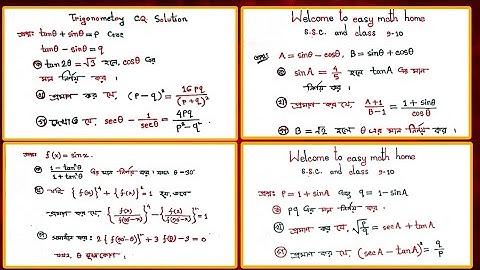 Trigonometry CQ Solution
প্রশ্নঃ tanθ + sinθ = p এবং
tanθ − sinθ = q
ক) tan2θ = √3 হলে, cosθ এর
মান নির্ণয় কর ।
খ) প্রমাণ কর যে, (p − q)² = 16pq/(p+q)²
গ) দেখাও যে, secθ − 1/secθ = 4pq/(p²−q²)
Welcome to easy math home
S.S.C. and class 9-10
প্রশ্নঃ A = sinθ − cosθ, B = sinθ + cosθ
ক) sinA = 4/5 হলে tanA এর মান
নির্ণয় কর ।
খ) প্রমাণ কর যে, (A+1)/(B−1) = (1+sinθ)/cosθ
গ) B = √2 হলে θ এর মান নির্ণয় কর ।
প্রশ্নঃ f(x) = sinx.
ক) (1−tan²θ)/(1+tan²θ) এর মান নির্ণয় কর । যখন θ = 90°
খ) যদি {f(x)}⁴ + {f(x)}² = 1 হয়, তবে
প্রমাণ কর যে, {f(x)/f(90°−x)}⁴ − {f(x)/f(90°−x)}² = 1
গ) সমাধান কর : 2{f(90°−θ)}² + 3f(θ) − 3 = 0
যখন, θ সূক্ষ্মকোণ ।
Welcome to easy math home
S.S.C. and class 9-10
প্রশ্নঃ P = 1 + sinA এবং q = 1 − sinA
ক) pq এর মান নির্ণয় কর ।
খ) প্রমাণ কর যে, √(p/q) = secA + tanA
গ) প্রমাণ কর যে, (secA − tanA)² = q/p